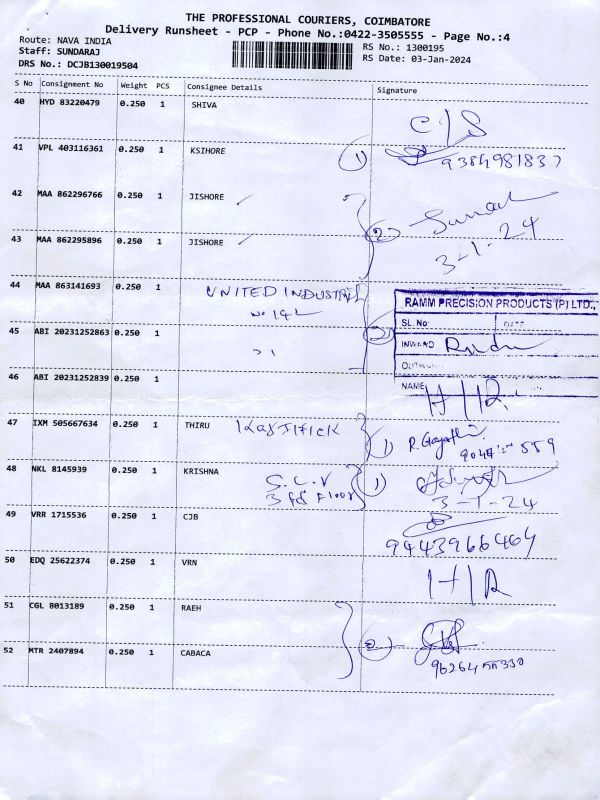 THE PROFESSIONAL COURIERS, COIMBATORE
Delivery Runsheet - PCP - Phone No.:0422-3505555 - Page No.:4
Route: NAVA INDIA
RS No.: 1300195
Staff: SUNDARAJ
RS Date: 03-Jan-2024
DRS No.: DCJB130019504
S No Consignment No Weight PCS Consignee Details Signature
40 HYD 83220479 0.250 1 SHIVA
C/S
41 VPL 403116361 0.250 1 KSIHORE
1
9384981837
42 MAA 862296766 0.250 1 JISHORE
2
43 MAA 862295896 0.250 1 JISHORE
3-1-24
44 MAA 863141693 0.250 1 UNITED INDUSTRIEL
No 142
RAMM PRECISION PRODUCTS (P) LTD.,
SL. No DATE
45 ABI 20231252863 0.250 1
INWARD
NAME
46 ABI 20231252839 0.250 1
H/R
47 IXM 505667634 0.250 1 THIRU
1
48 NKL 8145939 0.250 1 KRISHNA
S.L.V
3rd Floor
1
3-1-24
49 VRR 1715536 0.250 1 CJB
9443966464
50 EDQ 25622374 0.250 1 VRN
H/R
51 CGL 8013189 0.250 1 RAEH
2
52 MTR 2407894 0.250 1 CABACA